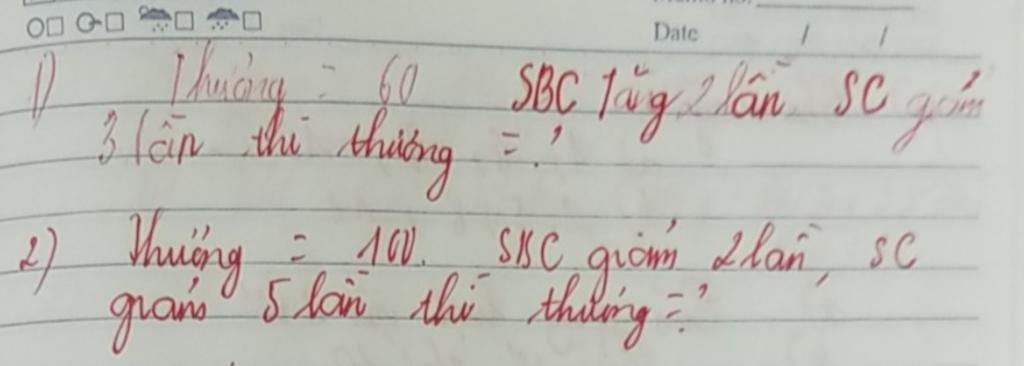 Date / /
1) Thương = 60 SBC tăng 2 lần, SC giảm
3 lần thì thương = ?
2) Thương = 100. SBC giảm 2 lần, SC
giảm 5 lần thì thương = ?